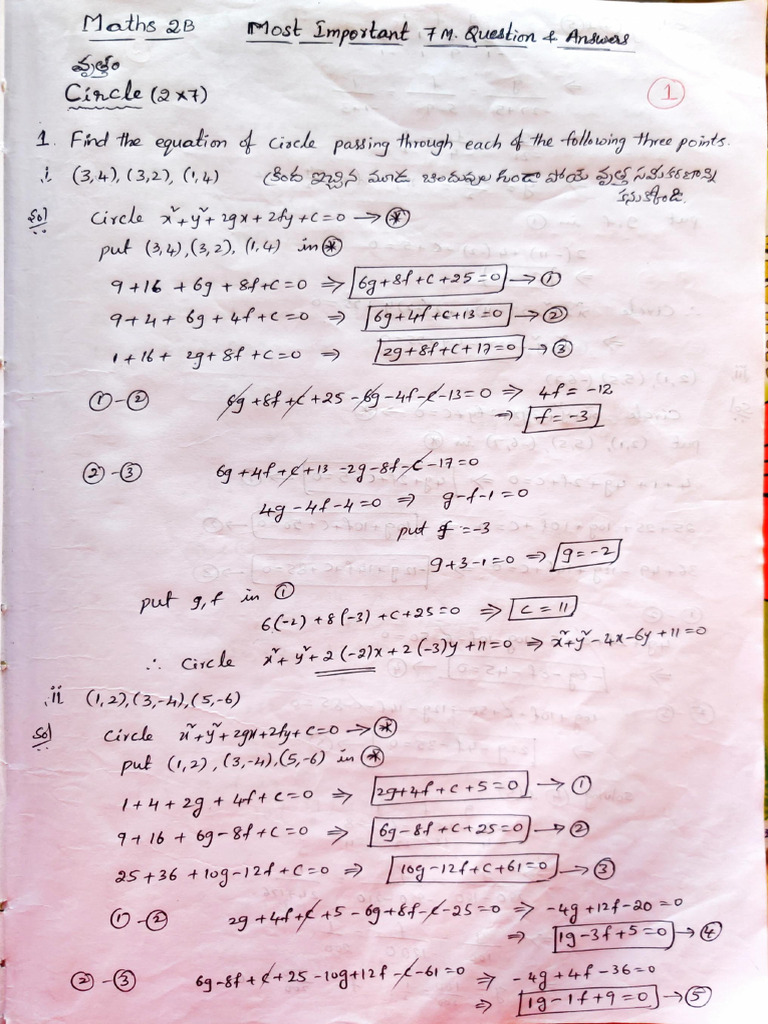 Maths 2B Most Important 7 M. Question & Answers
వృత్తం
Circle (2×7)
1
1. Find the equation of Circle passing through each of the following three points.
i. (3,4), (3,2), (1,4) క్రింద ఇచ్చిన మూడు బిందువుల గుండా పోయే వృత్త సమీకరణాన్ని
కనుక్కోండి.
Sol Circle x²+y²+2gx+2fy+c=0 → ⊛
put (3,4), (3,2), (1,4) in ⊛
9+16+6g+8f+c=0 ⇒ 6g+8f+c+25=0 → ①
9+4+6g+4f+c=0 ⇒ 6g+4f+c+13=0 → ②
1+16+2g+8f+c=0 ⇒ 2g+8f+c+17=0 → ③
①-② 6g+8f+c+25-6g-4f-c-13=0 ⇒ 4f=-12
⇒ f=-3
②-③ 6g+4f+c+13-2g-8f-c-17=0
4g-4f-4=0 ⇒ g-f-1=0
put f=-3
g+3-1=0 ⇒ g=-2
put g,f in ①
6(-2)+8(-3)+c+25=0 ⇒ c=11
∴ Circle x²+y²+2(-2)x+2(-3)y+11=0 ⇒ x²+y²-4x-6y+11=0
ii (1,2), (3,-4), (5,-6)
Sol Circle x²+y²+2gx+2fy+c=0 → ⊛
put (1,2), (3,-4), (5,-6) in ⊛
1+4+2g+4f+c=0 ⇒ 2g+4f+c+5=0 → ①
9+16+6g-8f+c=0 ⇒ 6g-8f+c+25=0 → ②
25+36+10g-12f+c=0 ⇒ 10g-12f+c+61=0 → ③
①-② 2g+4f+c+5-6g+8f-c-25=0 ⇒ -4g+12f-20=0
⇒ 1g-3f+5=0 → ④
②-③ 6g-8f+c+25-10g+12f-c-61=0 ⇒ -4g+4f-36=0
⇒ 1g-1f+9=0 → ⑤